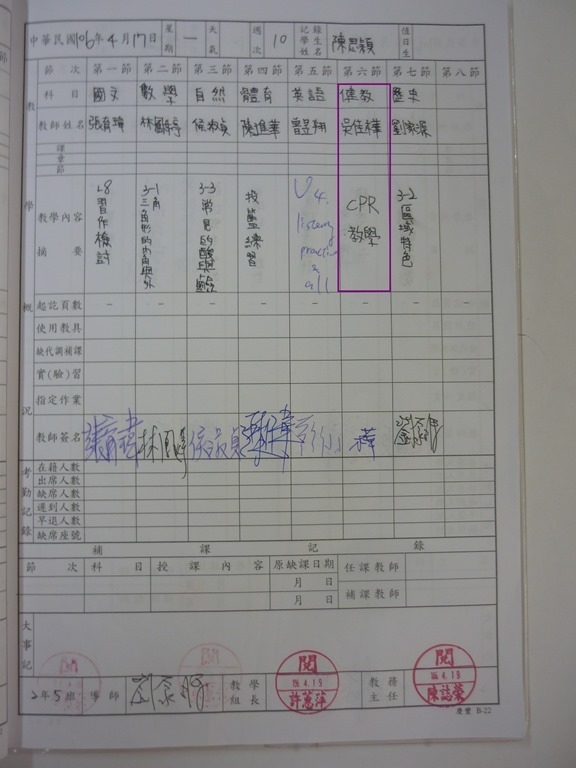 中華民國106年4月17日 星期 一 天氣 週次 10 記錄學生姓名 陳思穎 值日生
節次 第一節 第二節 第三節 第四節 第五節 第六節 第七節 第八節
科目 國文 數學 自然 體育 英語 健教 歷史
教師姓名 張育瑋 陳進華 曾昱翔 吳佳樺
課章節
教學內容摘要 L8習作檢討 3-1三角形的內角與外 3-3常見的酸與鹼 投籃練習 U4. listening practice & all CPR教學 3-2區域特色
起訖頁數 – – – – – – – –
使用教具
缺代調補課
實(驗)習
指定作業
教師簽名 樺
教學概況
考勤記錄
在籍人數
出席人數
缺席人數
遲到人數
早退人數
缺席座號
補課記錄
節次 科目 授課內容 原缺課日期 任課教師
月 日
月 日 補課教師
大事記
2年5班 導師 教學組長 閱 106.4.19 許蕙萍 教務主任 閱 106.4.19 陳誌榮
慶豐 B-22